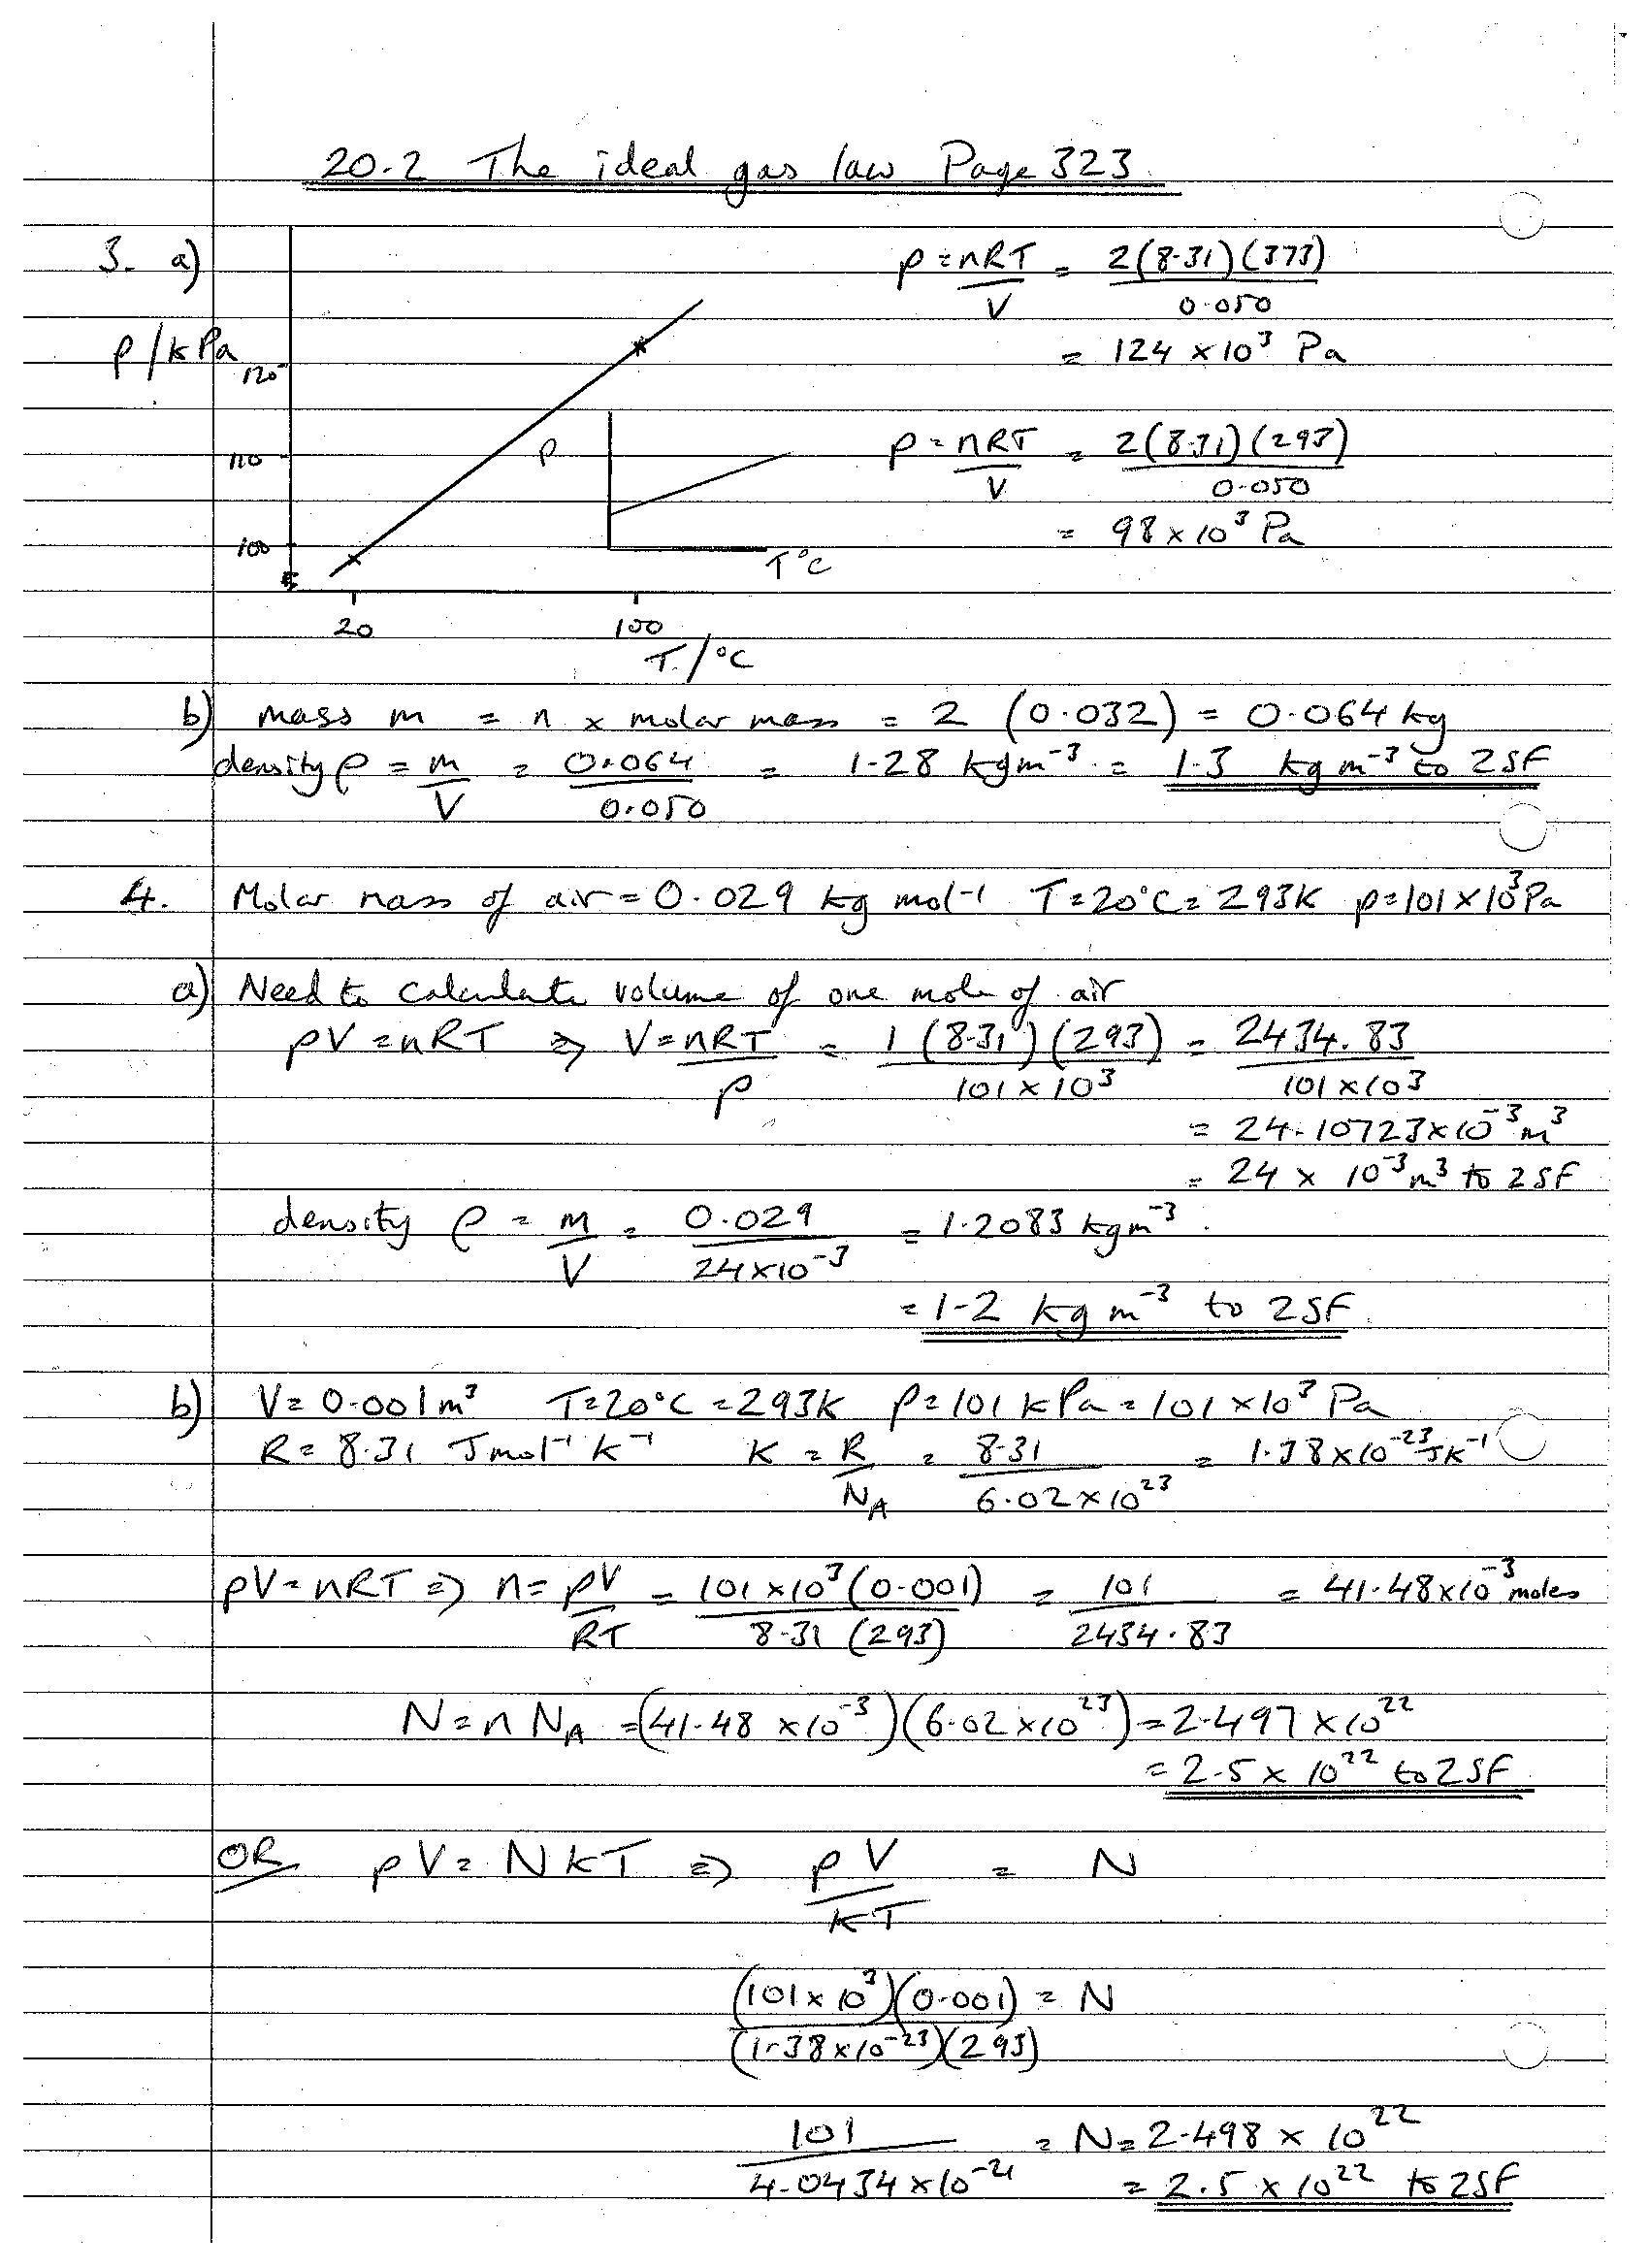 20.2 The ideal gas law Page 323
3. a) p = nRT/V = 2(8.31)(373)/0.050
= 124 × 10³ Pa
p/kPa
120
110
100
p
T°C
20 100
T/°C
p = nRT/V = 2(8.31)(293)/0.050
= 98 × 10³ Pa
b) mass m = n × molar mass = 2 (0.032) = 0.064 kg
density ρ = m/V = 0.064/0.050 = 1.28 kg m⁻³ = 1.3 kg m⁻³ to 2SF
4. Molar mass of air = 0.029 kg mol⁻¹ T = 20°C = 293K p = 101 × 10³ Pa
a) Need to calculate volume of one mole of air
pV = nRT ⇒ V = nRT/p = 1 (8.31)(293)/101 × 10³ = 2434.83/101 × 10³
= 24.10723 × 10⁻³ m³
= 24 × 10⁻³ m³ to 2SF
density ρ = m/V = 0.029/24 × 10⁻³ = 1.2083 kg m⁻³.
= 1.2 kg m⁻³ to 2SF
b) V = 0.001 m³ T = 20°C = 293K p = 101 kPa = 101 × 10³ Pa
R = 8.31 J mol⁻¹ K⁻¹ K = R/N_A = 8.31/6.02 × 10²³ = 1.38 × 10⁻²³ JK⁻¹
pV = nRT ⇒ n = pV/RT = 101 × 10³ (0.001)/8.31 (293) = 101/2434.83 = 41.48 × 10⁻³ moles
N = n N_A = (41.48 × 10⁻³)(6.02 × 10²³) = 2.497 × 10²²
= 2.5 × 10²² to 2SF
OR pV = NkT ⇒ pV/kT = N
(101 × 10³)(0.001)/(1.38 × 10⁻²³)(293) = N
101/4.0434 × 10⁻²¹ = N = 2.498 × 10²²
= 2.5 × 10²² to 2SF